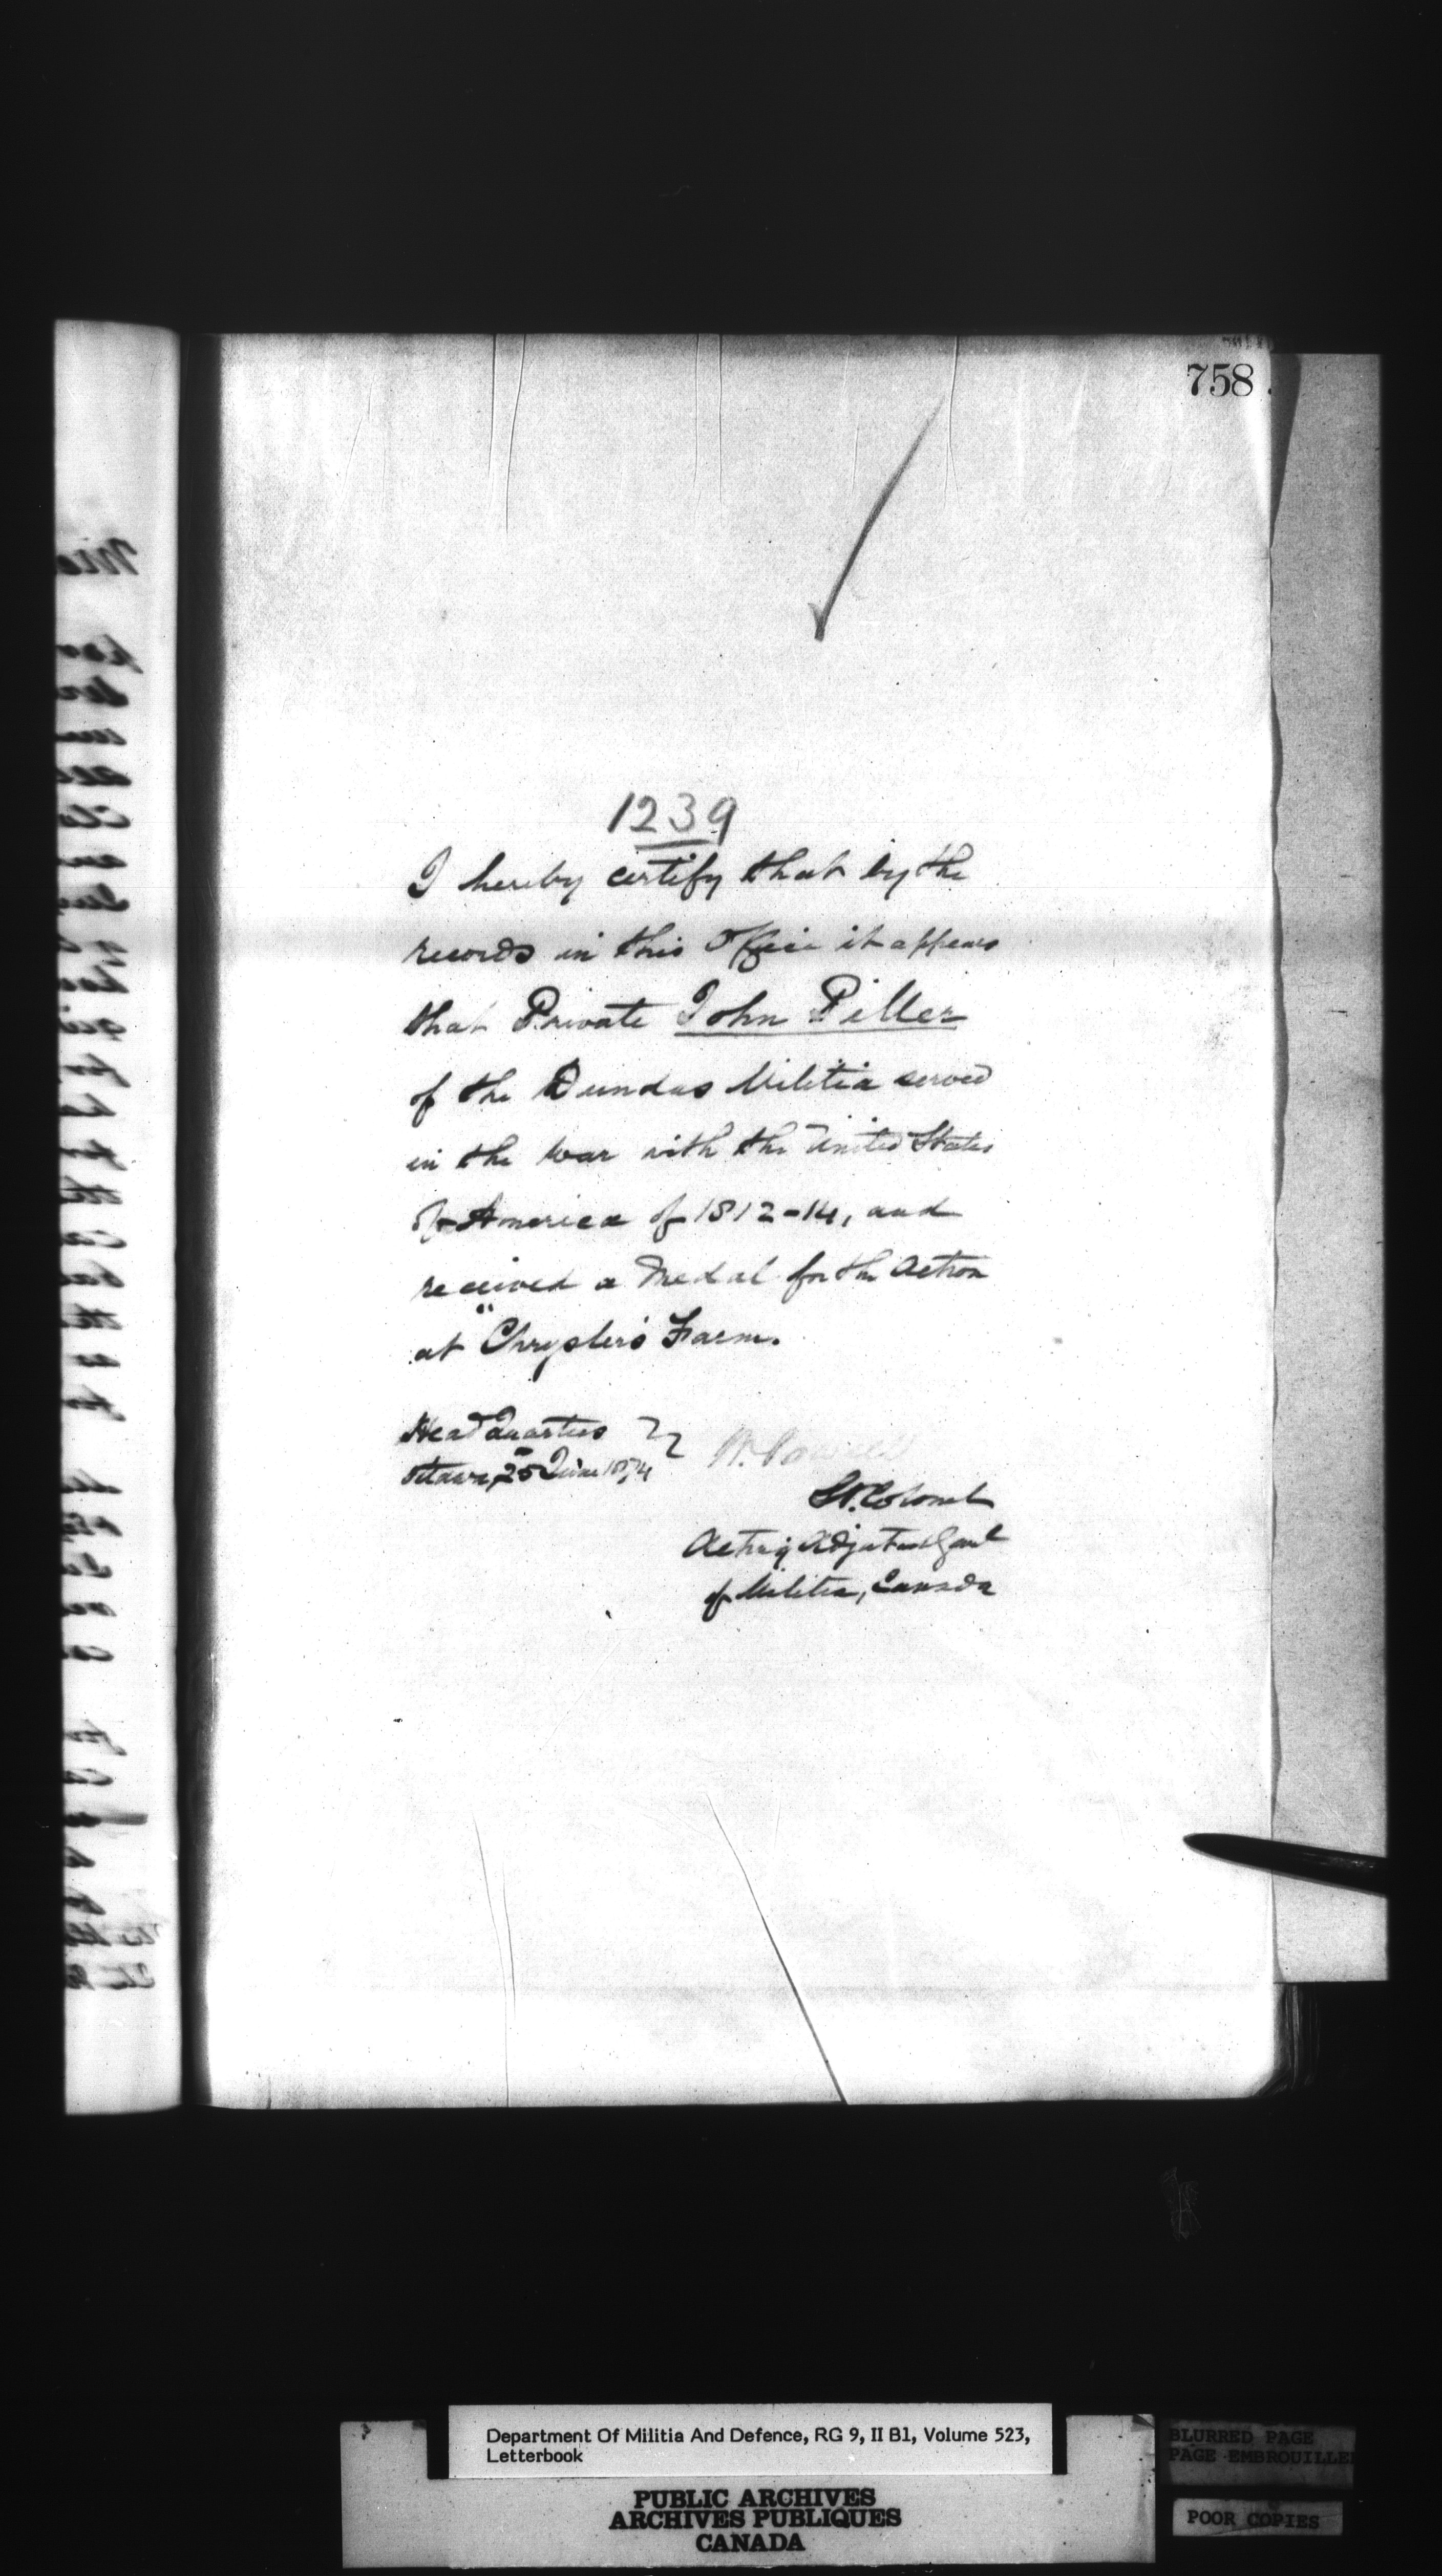 758
1239
I hereby certify that by the
records in this Office it appears
that Private John Piller
of the Dundas Militia served
in the War with the United States
of America of 1812-14, and
received a Medal for the Action
at "Chrysler's Farm.
Head Quarters
Ottawa, 25 June 1874
W. Powell
Lt. Colonel
Acting Adjutant Genl
of Militia, Canada
Department Of Militia And Defence, RG 9, II B1, Volume 523,
Letterbook
PUBLIC ARCHIVES
ARCHIVES PUBLIQUES
CANADA
BLURRED PAGE
PAGE EMBROUILLE
POOR COPIES